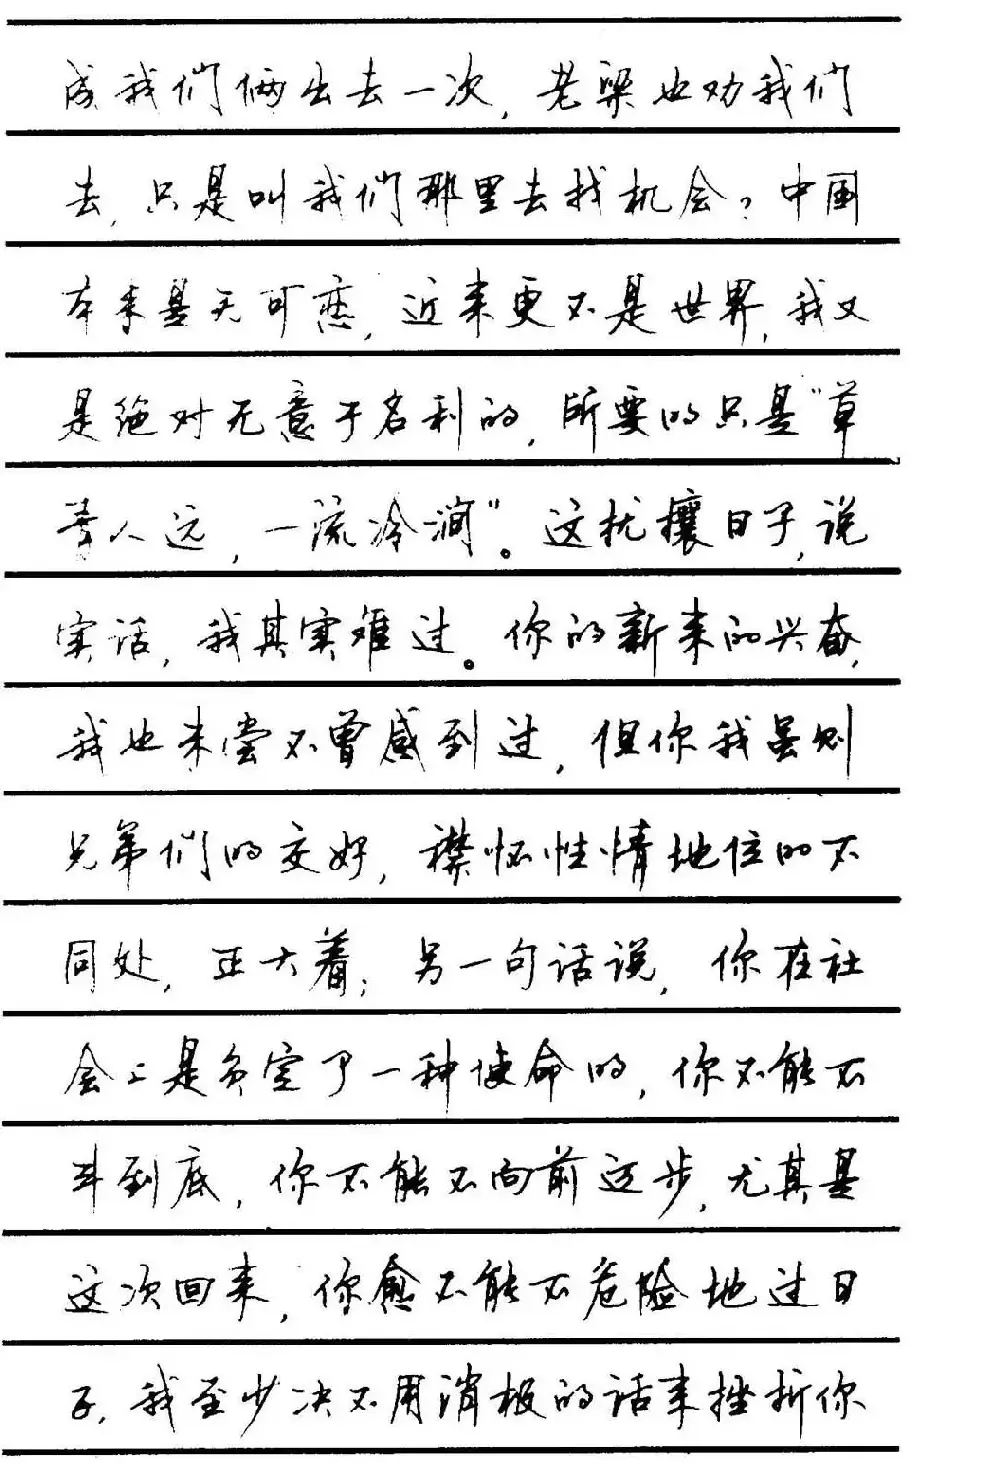 成我们俩出去一次，老梁也劝我们
去，只是叫我们那里去找机会？中国
本来是无可恋，近来更不是世界，我又
是绝对无意于名利的，所要的只是“草
青人远，一流冷涧”。这扰攘日子，说
实话，我其实难过。你的新来的兴奋，
我也未尝不曾感到过，但你我虽则
兄弟们的交好，襟怀性情地位的不
同处，正大着；另一句话说，你在社
会上是负定了一种使命的，你不能不
斗到底，你不能不向前迈步，尤其是
这次回来，你愈不能不危险地过日
子，我至少决不用消极的话来挫折你